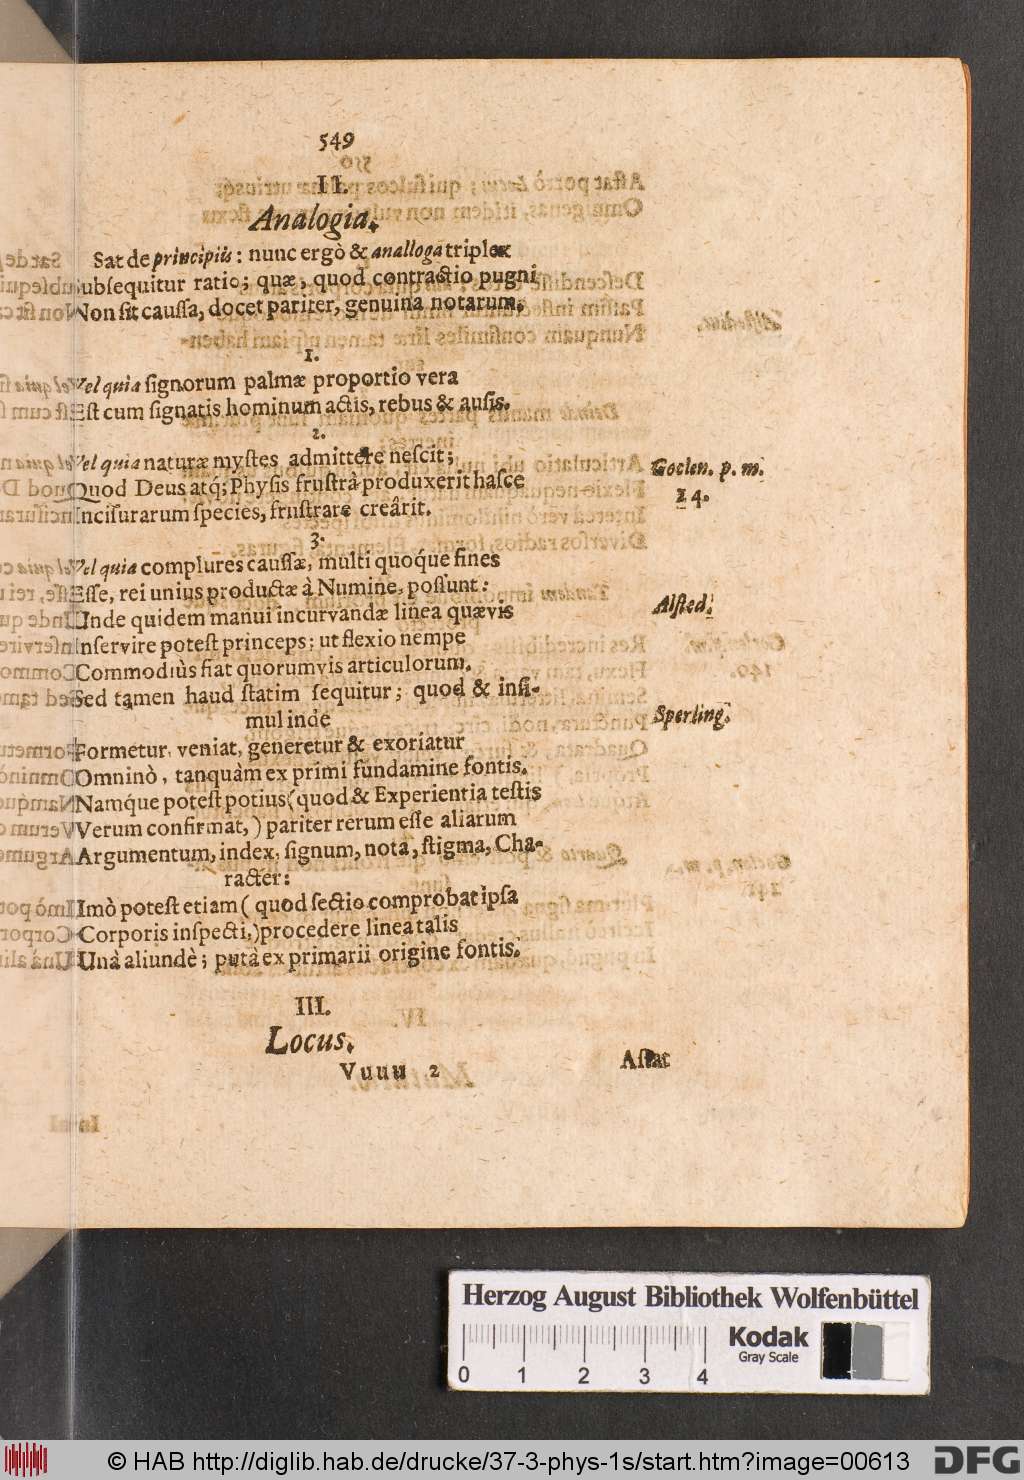 549
II.
Analogia.
Sat de principiis: nunc ergò & analloga triplex
Subsequitur ratio; quæ, quod contractio pugni
Non sit caussa, docet pariter, genuina notarum.
1.
Vel quia signorum palmæ proportio vera
Est cum signatis hominum actis, rebus & ausis.
2.
Vel quia naturæ mystes admittere nescit;
Quod Deus atq; Physis frustrà produxerit hasce
Incisurarum species, frustrare creârit.
Goclen. p. m.
14.
3.
Vel quia complures caussæ, multi quoq́ue fines
Esse, rei unius productæ à Numine, possunt:
Unde quidem manui incurvandæ linea quævis
Inservire potest princeps; ut flexio nempe
Commodiùs fiat quorumvis articulorum.
Alsted.
Sed tamen haud statim sequitur; quod & insi-
mul inde
Sperling.
Formetur, veniat, generetur & exoriatur
Omninò, tanquàm ex primi fundamine fontis.
Namq́ue potest potius (quod & Experientia testis
Verum confirmat,) pariter rerum esse aliarum
Argumentum, index, signum, nota, stigma, Cha-
racter:
Imò potest etiam (quod sectio comprobat ipsa
Corporis inspecti,) procedere linea talis
Unà aliundè; putà ex primarii origine fontis.
III.
Locus.
Vuuu 2
Astat
Herzog August Bibliothek Wolfenbüttel
0 1 2 3 4
Kodak
Gray Scale
© HAB http://diglib.hab.de/drucke/37-3-phys-1s/start.htm?image=00613
DFG